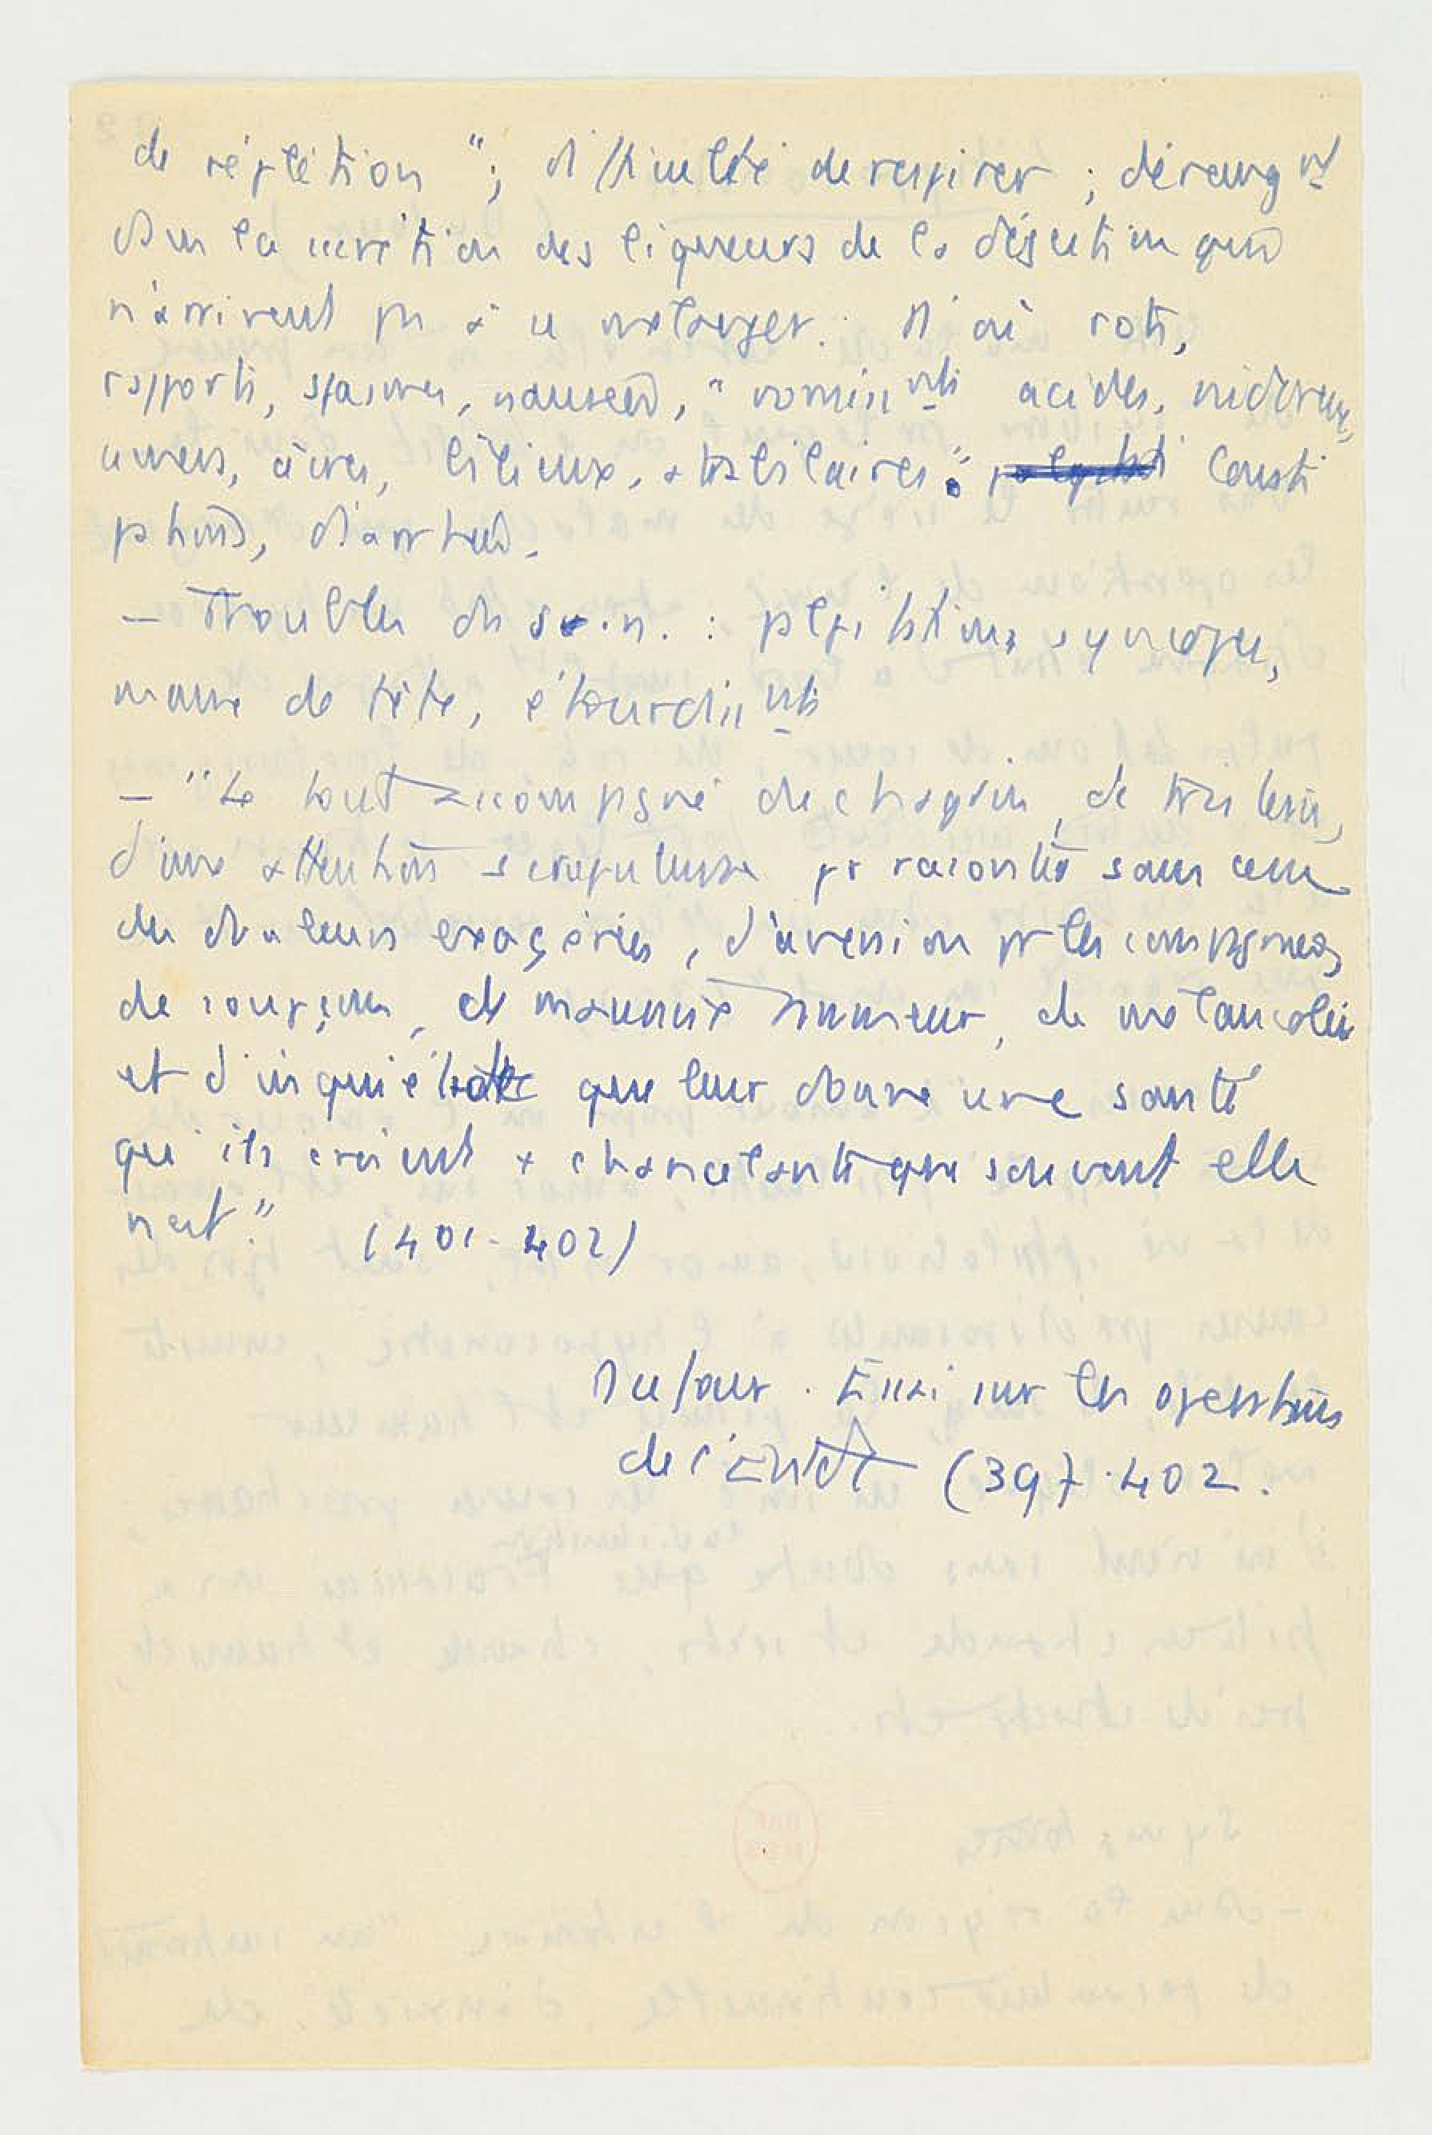 de réplétion "; difficulté de respirer ; dérangnt
dans la secrétion des liqueurs de la digestion qui
n'arrivent pas à se mélanger. D'où rots,
rapports, spasmes, nausées, " vomissnts acides, nidoreux,
amers, âcres, bilieux, atrabilaires". Consti
pations, diarrhées.
— Troubles du : palpitations, syncopes,
maux de tête, étourdissnts
— "Le tout accompagné de chagrin, de tristesse,
d'une attention scrupuleuse pr raconter sans cesse
des douleurs exagérées, d'aversion pr les compagnies,
de soupçons, de mauvaise humeur, de mélancolie
et d'inquiétude que leur donne une santé
qu'ils croient + chancelante que souvent elle
n'est." (401-402)
Dufour. Essai sur les opérations
de l'Entdt (397-402.